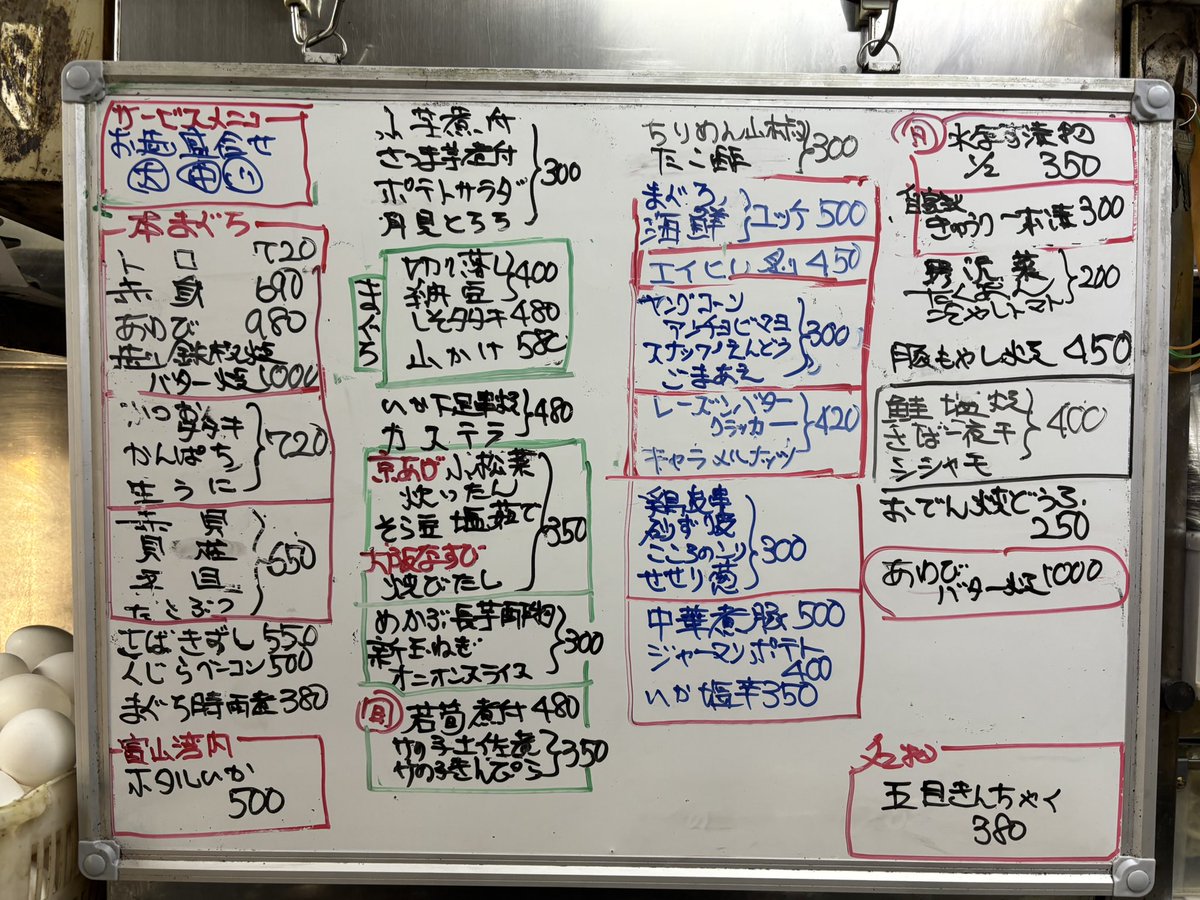 サービスメニュー
お造り盛合せ
本まぐろ
トロ 720
赤身 690
あわび 980
蒸し 鉄板焼
バター焼 1000
かつおタタキ
かんぱち
生うに
720
赤貝
貝柱
平目
650
さばきずし 550
くじらベーコン 500
まぐろ時雨煮 380
富山湾内
ホタルいか
500
小芋煮付
さつま芋煮付
ポテトサラダ
月見とろろ
300
まぐろ
切り落し
納豆
400
しそタタキ 480
山かけ 580
いか下足串焼
カステラ
480
京あげ小松菜
炊いたん
そら豆塩茹で
大阪なすび
焼びたし
350
めかぶ長芋
新玉ねぎ
オニオンスライス
300
旬 若筍煮付 480
竹の子土佐煮
竹の子きんぴら
350
ちりめん山椒
たこ酢
300
まぐろ
海鮮
ユッケ 500
エイヒレ炙り 450
ヤングコーン
アンチョビマヨ
スナックえんどう
ごまあえ
300
レーズンバター
クラッカー
キャラメルナッツ
420
鶏皮串
砂ずり
こころのこり
せせり葱
300
中華煮豚 500
ジャーマンポテト
400
いか塩辛 350
旬 水なす漬物
1/2 350
自家製
きゅうり一本漬 300
野沢菜
ひやしトマト
200
豚もやし炒 450
鮭塩焼
さば一夜干
シシャモ
400
おでん焼どうふ
250
あわび
バター焼 1000
名物
五目きんちゃく
380